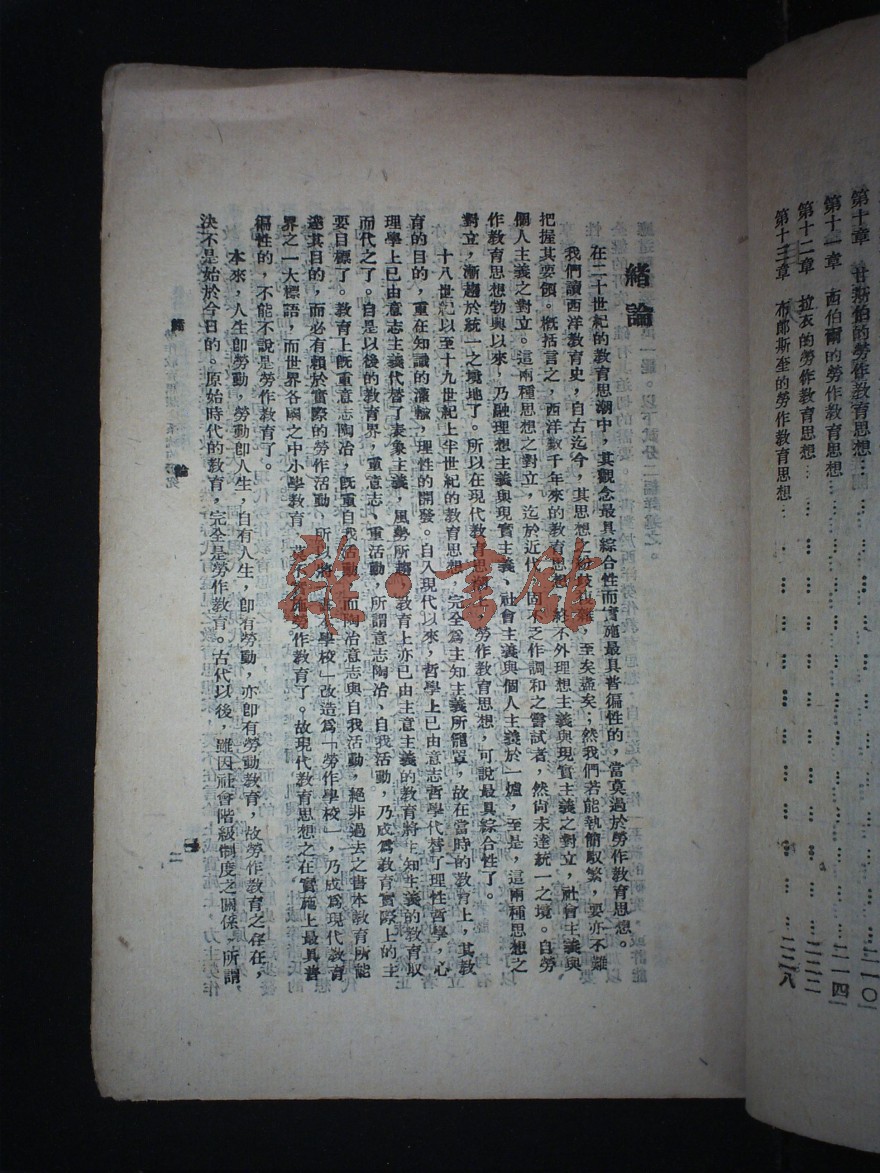 第十章 甘斯伯的勞作教育思想…………二一〇
第十一章 西伯爾的勞作教育思想…………二一四
第十二章 拉衣的勞作教育思想…………二二二
第十三章 布郎斯奎的勞作教育思想…………二二八
緒論
在二十世紀的教育思潮中，其觀念最具綜合性而實施最具普徧性的，當莫過於勞作教育思想。
我們讀西洋教育史，自古迄今，其思想之紛歧，至矣盡矣；然我們若能執簡馭繁，要亦不難
把握其要領。概括言之，西洋數千年來的教育思想，終不外理想主義與現實主義之對立，社會主義與
個人主義之對立。這兩種思想之對立，迄於近代，固不乏作調和之嘗試者，然尙未達統一之境。自勞
作教育思想勃興以來，乃融理想主義與現實主義、社會主義與個人主義於一爐，至是，這兩種思想之
對立，漸趨於統一之境地了。所以在現代教育思潮上，勞作教育思想，可說最具綜合性了。
十八世紀以至十九世紀上半世紀的教育思想，完全爲主知主義所籠罩，故在當時的教育上，其教
育的目的，重在知識的灌輸，理性的開發。自入現代以來，哲學上已由意志哲學代替了理性哲學，心
理學上已由意志主義代替了表象主義，風勢所趨，教育上亦已由主意主義的教育將主知主義的教育取
而代之了。自是以後的教育界，重意志、重活動，所謂意志陶冶、自我活動，乃成爲教育實際上的主
要目標了。教育上旣重意志陶冶，旣重自我活動，而陶冶意志與自我活動，絕非過去之書本教育所能
達其目的，而必有賴於實際的勞作活動，所以將「書本學校」改造爲「勞作學校」，乃成爲現代教育
界之一大標語，而世界各國之中小學教育，莫不實施勞作教育了。故現代教育思想之在實施上最具普
徧性的，不能不說是勞作教育了。
本來，人生卽勞動，勞動卽人生，自有人生，卽有勞動，亦卽有勞動教育，故勞作教育之存在，
決不是始於今日的。原始時代的教育，完全是勞作教育。古代以後，雖因社會階級制度之關係，所謂
緒 論
一
雜·書館